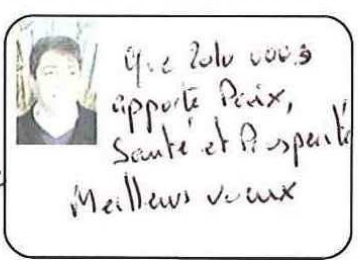 Que 2010 vous
apporte Paix,
Santé et Prosperité
Meilleurs voeux